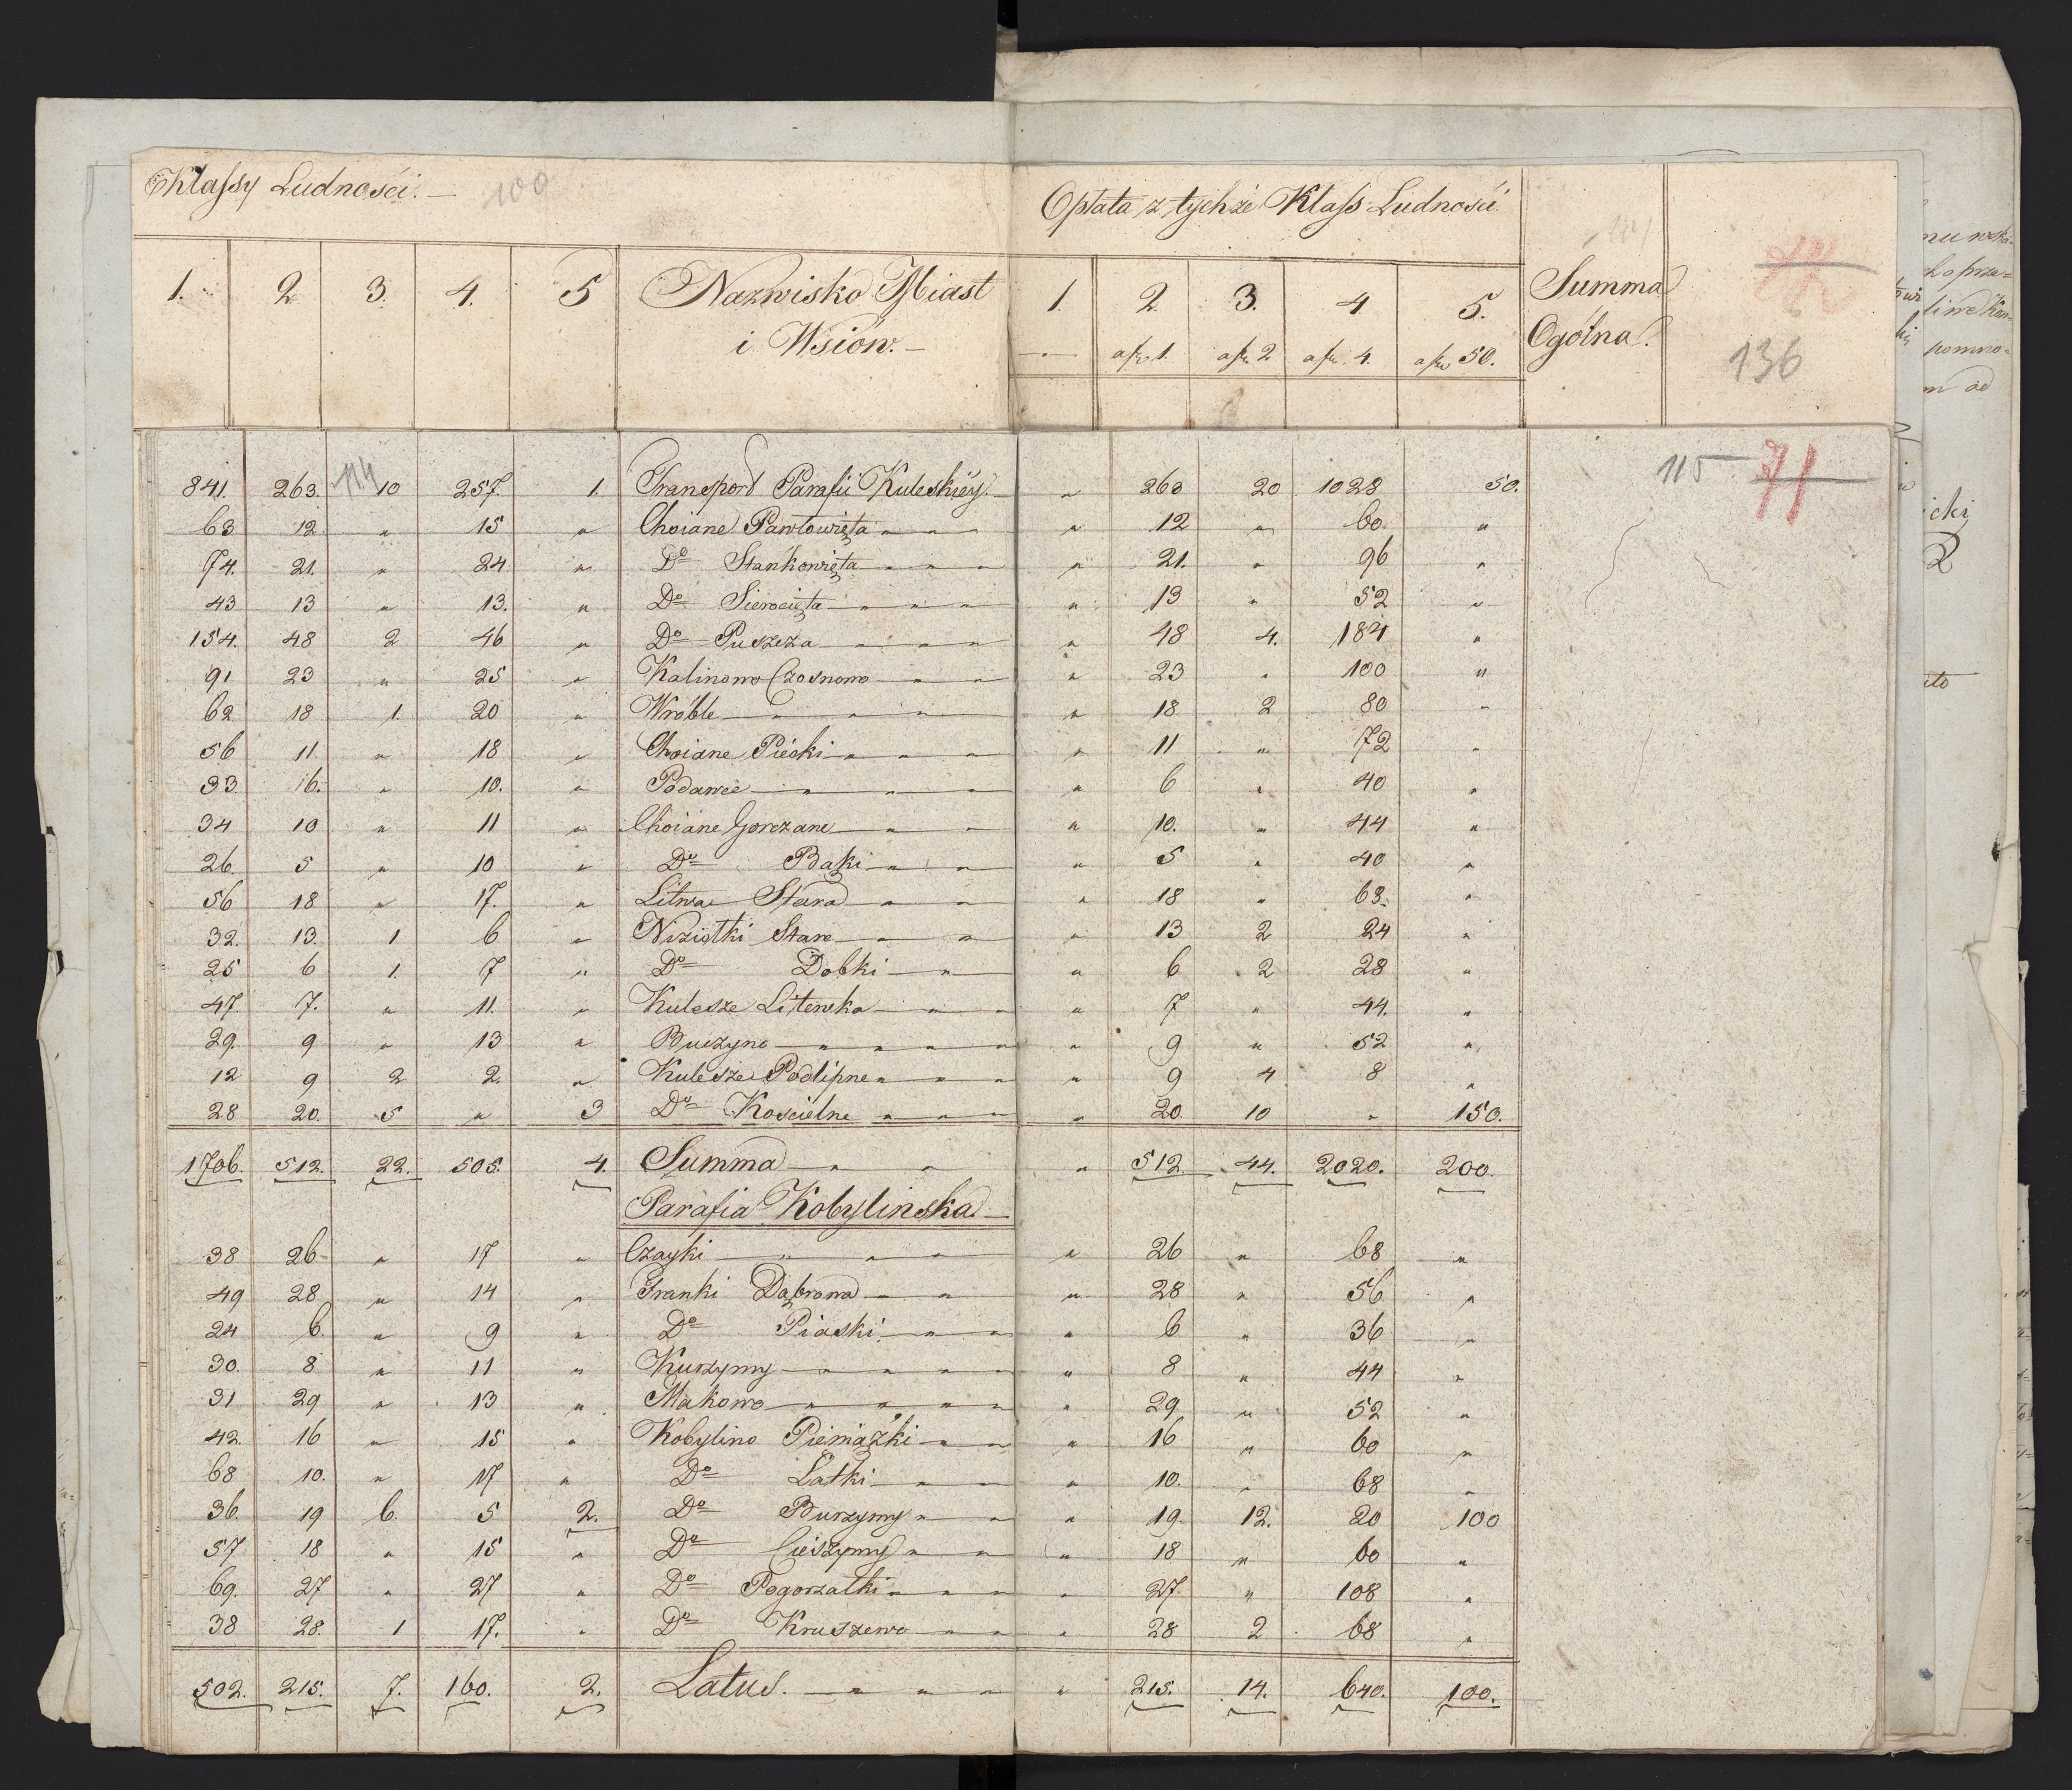 Klassy Ludności. — 100
Opłata z tychże Klass Ludności.
1. 2 3. 4. 5 Nazwisko Miast 1. 2. 3. 4 5. Summa
i Wsiów. — a fl. 1. a fl. 2 a fl. 4. a fl. 50. Ogólna.
136
114 115 71
841. 263. 10 257. 1. Transport Parafii Kuleskiéy. „ 263 20 1028 50.
63 12 „ 15 „ Choiane Pawłowięta „ „ „ „ 12 „ 60 „
74. 21. „ 24 „ Do Stankowięta „ „ „ „ 21. „ 96 „
43 13 „ 13. „ Do Sierocięta „ „ „ „ 13 „ 52 „
154. 48 2 46 „ Do Puszcza „ „ „ „ 48 4. 184 „
91 23 „ 25 „ Kalinowo Czosnowo „ „ „ 23 „ 100 „
62 18 1. 20 „ Wróble „ „ „ „ 18 2 80 „
56 11 „ 18 „ Choiane Piecki „ „ „ „ 11 „ 72 „
33 16. „ 10. „ Podawce „ „ „ „ 6 „ 40 „
34 10 „ 11 „ Choiane Gorczane „ „ „ 10. „ 44 „
26 5 „ 10 „ Do Bąki „ „ „ 5 „ 40 „
56 18 „ 17. „ Litwa Stara „ „ „ 18 „ 68. „
32. 13. 1 6 „ Niziołki Stare „ „ „ 13 2 24 „
25 6 1. 7 „ Do Dobki „ „ 6 2 28 „
47. 7. „ 11. „ Kulesze Litewka „ „ „ 7 „ 44. „
29. 9 „ 13 „ Buczyno „ „ „ „ „ 9 „ 52 „
12 9 2 2. „ Kulesze Podlipne „ „ „ „ 9 4 8 „
28 20. 5 „ 3 Do Koscielne „ „ „ „ 20. 10 „ 150.
1706. 512. 22. 505. 4. Summa „ „ „ 512 44. 2020. 200.
Parafia Kobylinska —
38 26 „ 17 „ Czayki „ „ „ „ 26 „ 68 „
49 28 „ 14 „ Franki Dąbrowa „ „ „ 28 „ 56 „
24 6. „ 9 „ Do Piaski „ „ „ 6 „ 36 „
30. 8 „ 11 „ Kurzymy „ „ „ „ „ 8 „ 44 „
31 29 „ 13 „ Makowo „ „ „ „ „ 29 „ 52 „
42. 16 „ 15 „ Kobylino Pieniążki „ „ „ 16 „ 60 „
68 10. „ 17 „ Do Latki „ „ „ 10. „ 68 „
36. 19 6. 5 2. Do Burzymy „ „ „ 19. 12. 20 100
57 18 „ 15 „ Do Cieszymy „ „ „ 18 „ 60 „
69. 27 „ 27 „ Do Pogorzałki „ „ „ „ 27. „ 108 „
38 28. 1 17. „ Do Kruszewo „ „ „ 28 2 68 „
502. 215. 7. 160. 2. Latus. „ „ „ „ 215. 14. 640. 100.